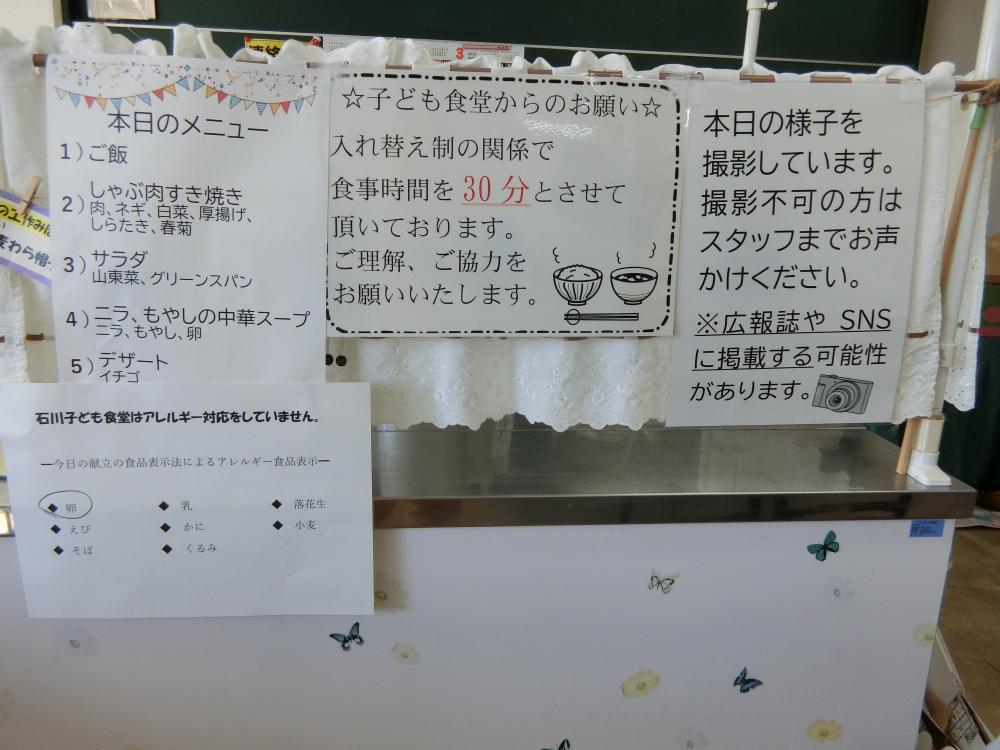 本日のメニュー
1）ご飯
2）しゃぶ肉すき焼き
肉、ネギ、白菜、厚揚げ、
しらたき、春菊
3）サラダ
山東菜、グリーンスパン
4）ニラ、もやしの中華スープ
ニラ、もやし、卵
5）デザート
イチゴ
☆子ども食堂からのお願い☆
入れ替え制の関係で
食事時間を 30 分とさせて
頂いております。
ご理解、ご協力を
お願いいたします。
本日の様子を
撮影しています。
撮影不可の方は
スタッフまでお声
かけください。
※広報誌や SNS
に掲載する可能性
があります。
石川子ども食堂はアレルギー対応をしていません。
―今日の献立の食品表示法によるアレルギー食品表示―
◆ 卵 ◆ 乳 ◆ 落花生
◆ えび ◆ かに ◆ 小麦
◆ そば ◆ くるみ